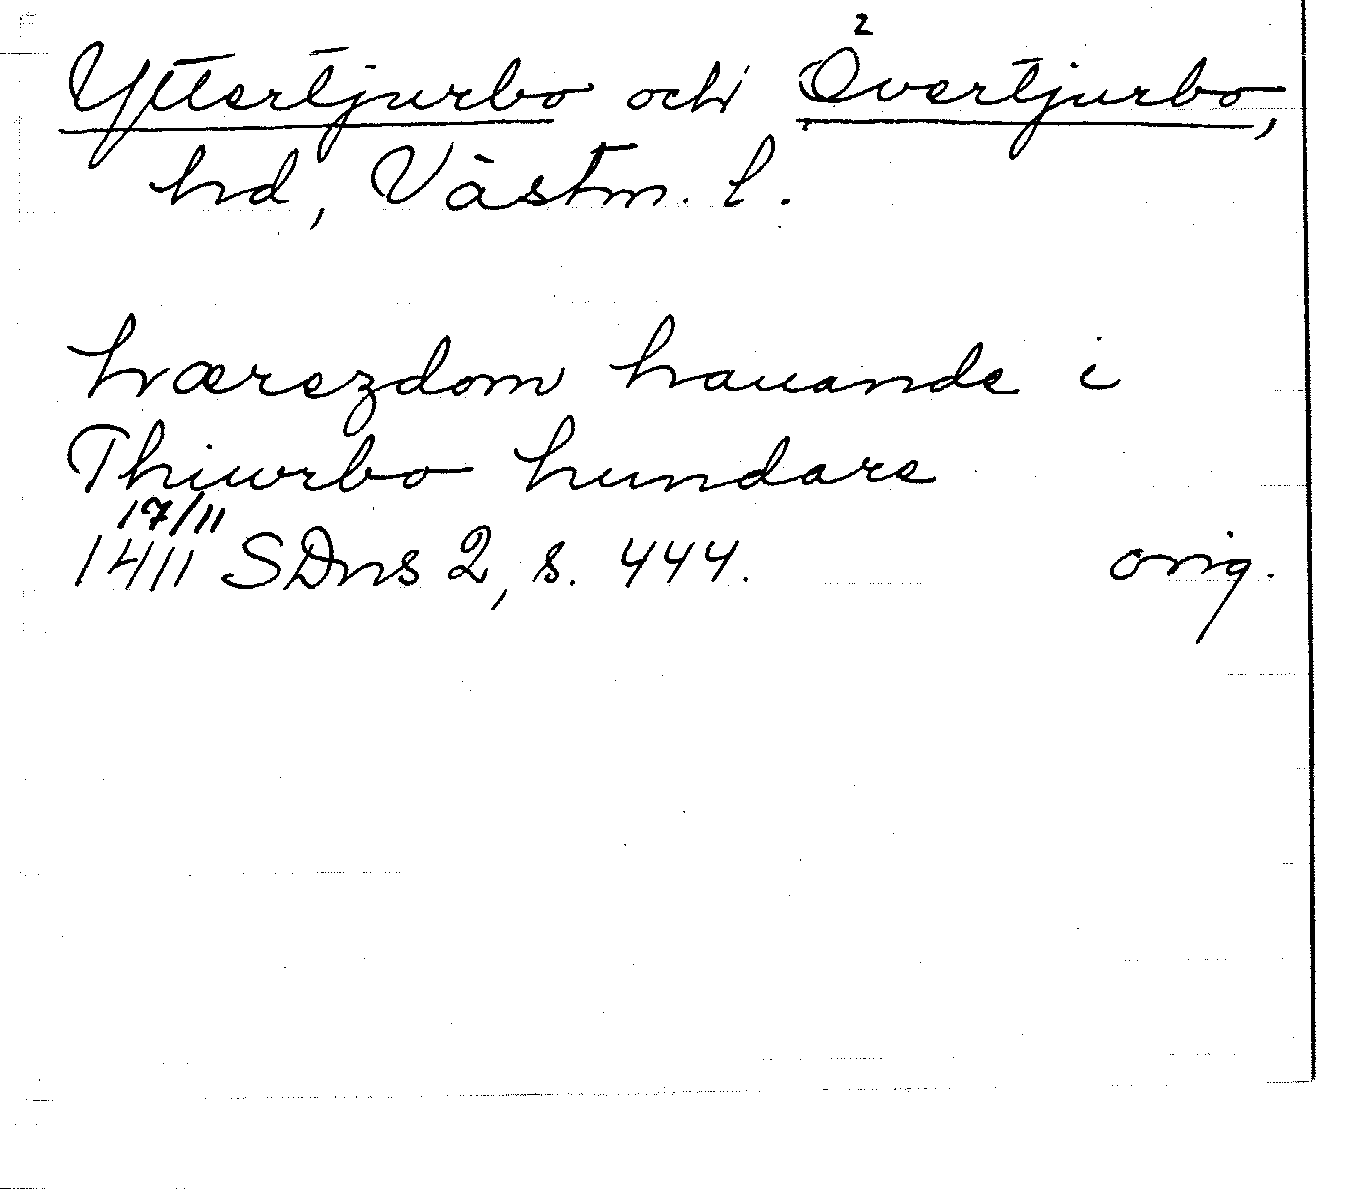 2
Yttertjurbo och Övertjurbo,
hd, Västm. l.
hæræzdom hauande i
Thiurbo hundare
17/11
1411 SDns 2, s. 444. orig.